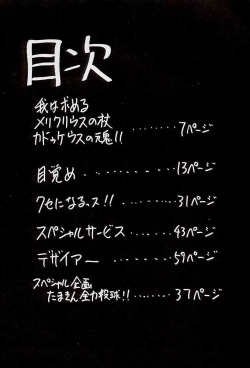 目次
我は求める
メリクリウスの杖
カドゥケウスの魂!! ········7ページ
目覚め ·········13ページ
クセになるっス!! ····31ページ
スペシャルサービス ·····43ページ
デザイアー ········59ページ
スペシャル企画
たまきん全力投球!! ·······37ページ